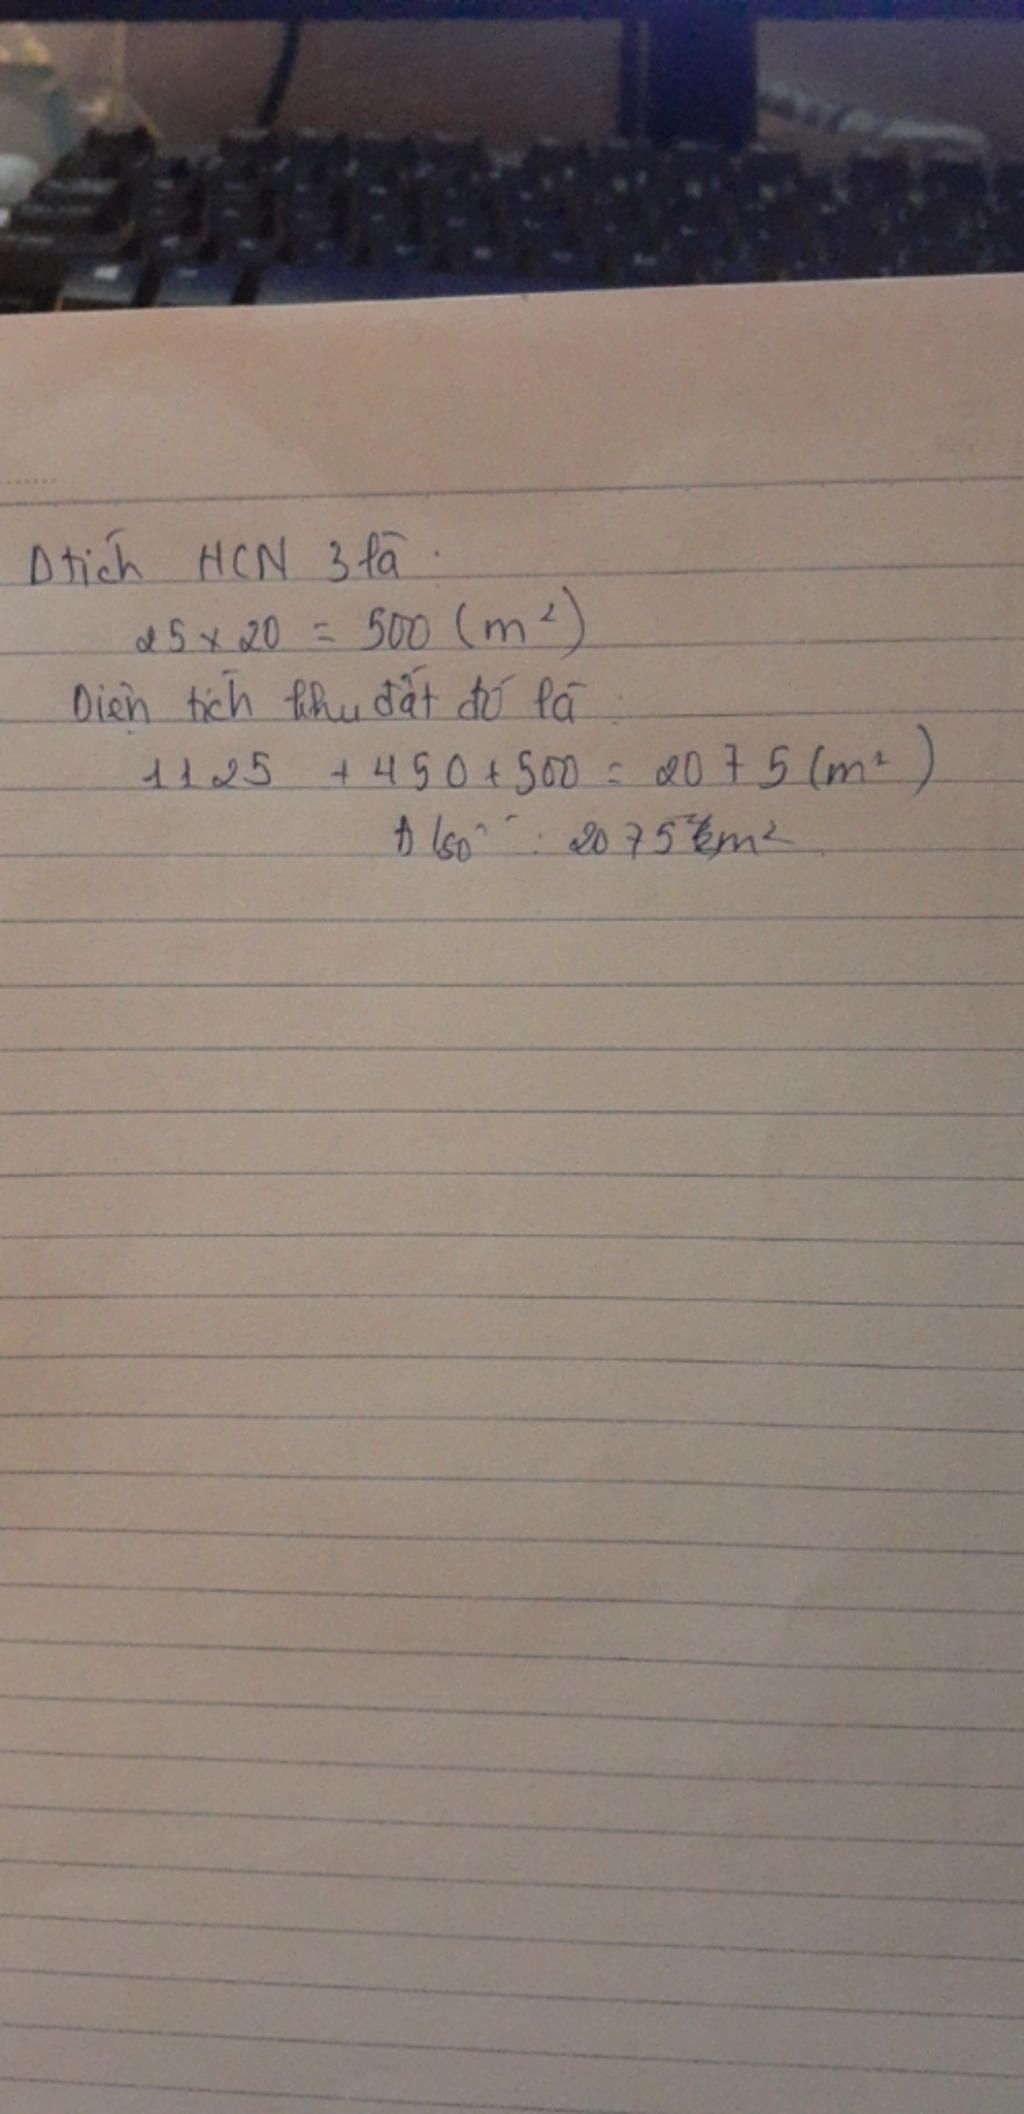 Dtích HCN 3 là.
25 x 20 = 500 (m²)
Diện tích khu đất đó là:
1125 + 450 + 500 = 2075 (m²)
: 2075 m²